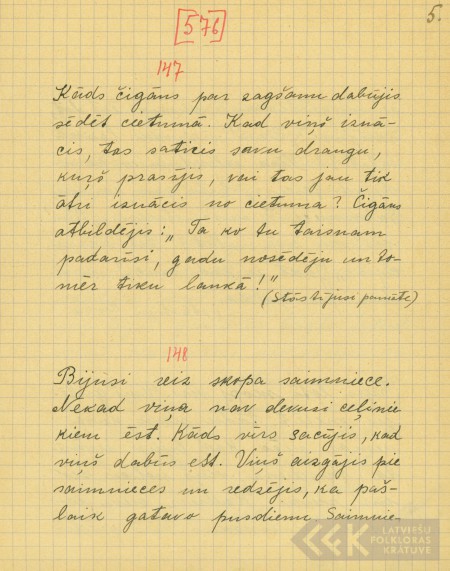 5.
[576]
147
Kāds čigāns par zagšanu dabūjis
sēdēt cietumā. Kad viņš iznā-
cis, tas saticis savu draugu,
kuŗš prasījis, vai tas jau tik
ātri iznācis no cietuma? Čigāns
atbildējis: „Ta ko tu taisnam
padarīsi, gadu nosēdēju un to-
mēr tiku laukā!"
(Stāstījusi pamāte)
148
Bijusi reiz skopa saimniece.
Nekad viņa nav devusi ceļinie
kiem ēst. Kāds vīrs sacījis, kad
viņš dabūs ēst. Viņš aizgājis pie
saimnieces un redzējis, ka paš-
laik gatavo pusdienu. Saimnie-
LATVIEŠU
FOLKLORAS
KRĀTUVE